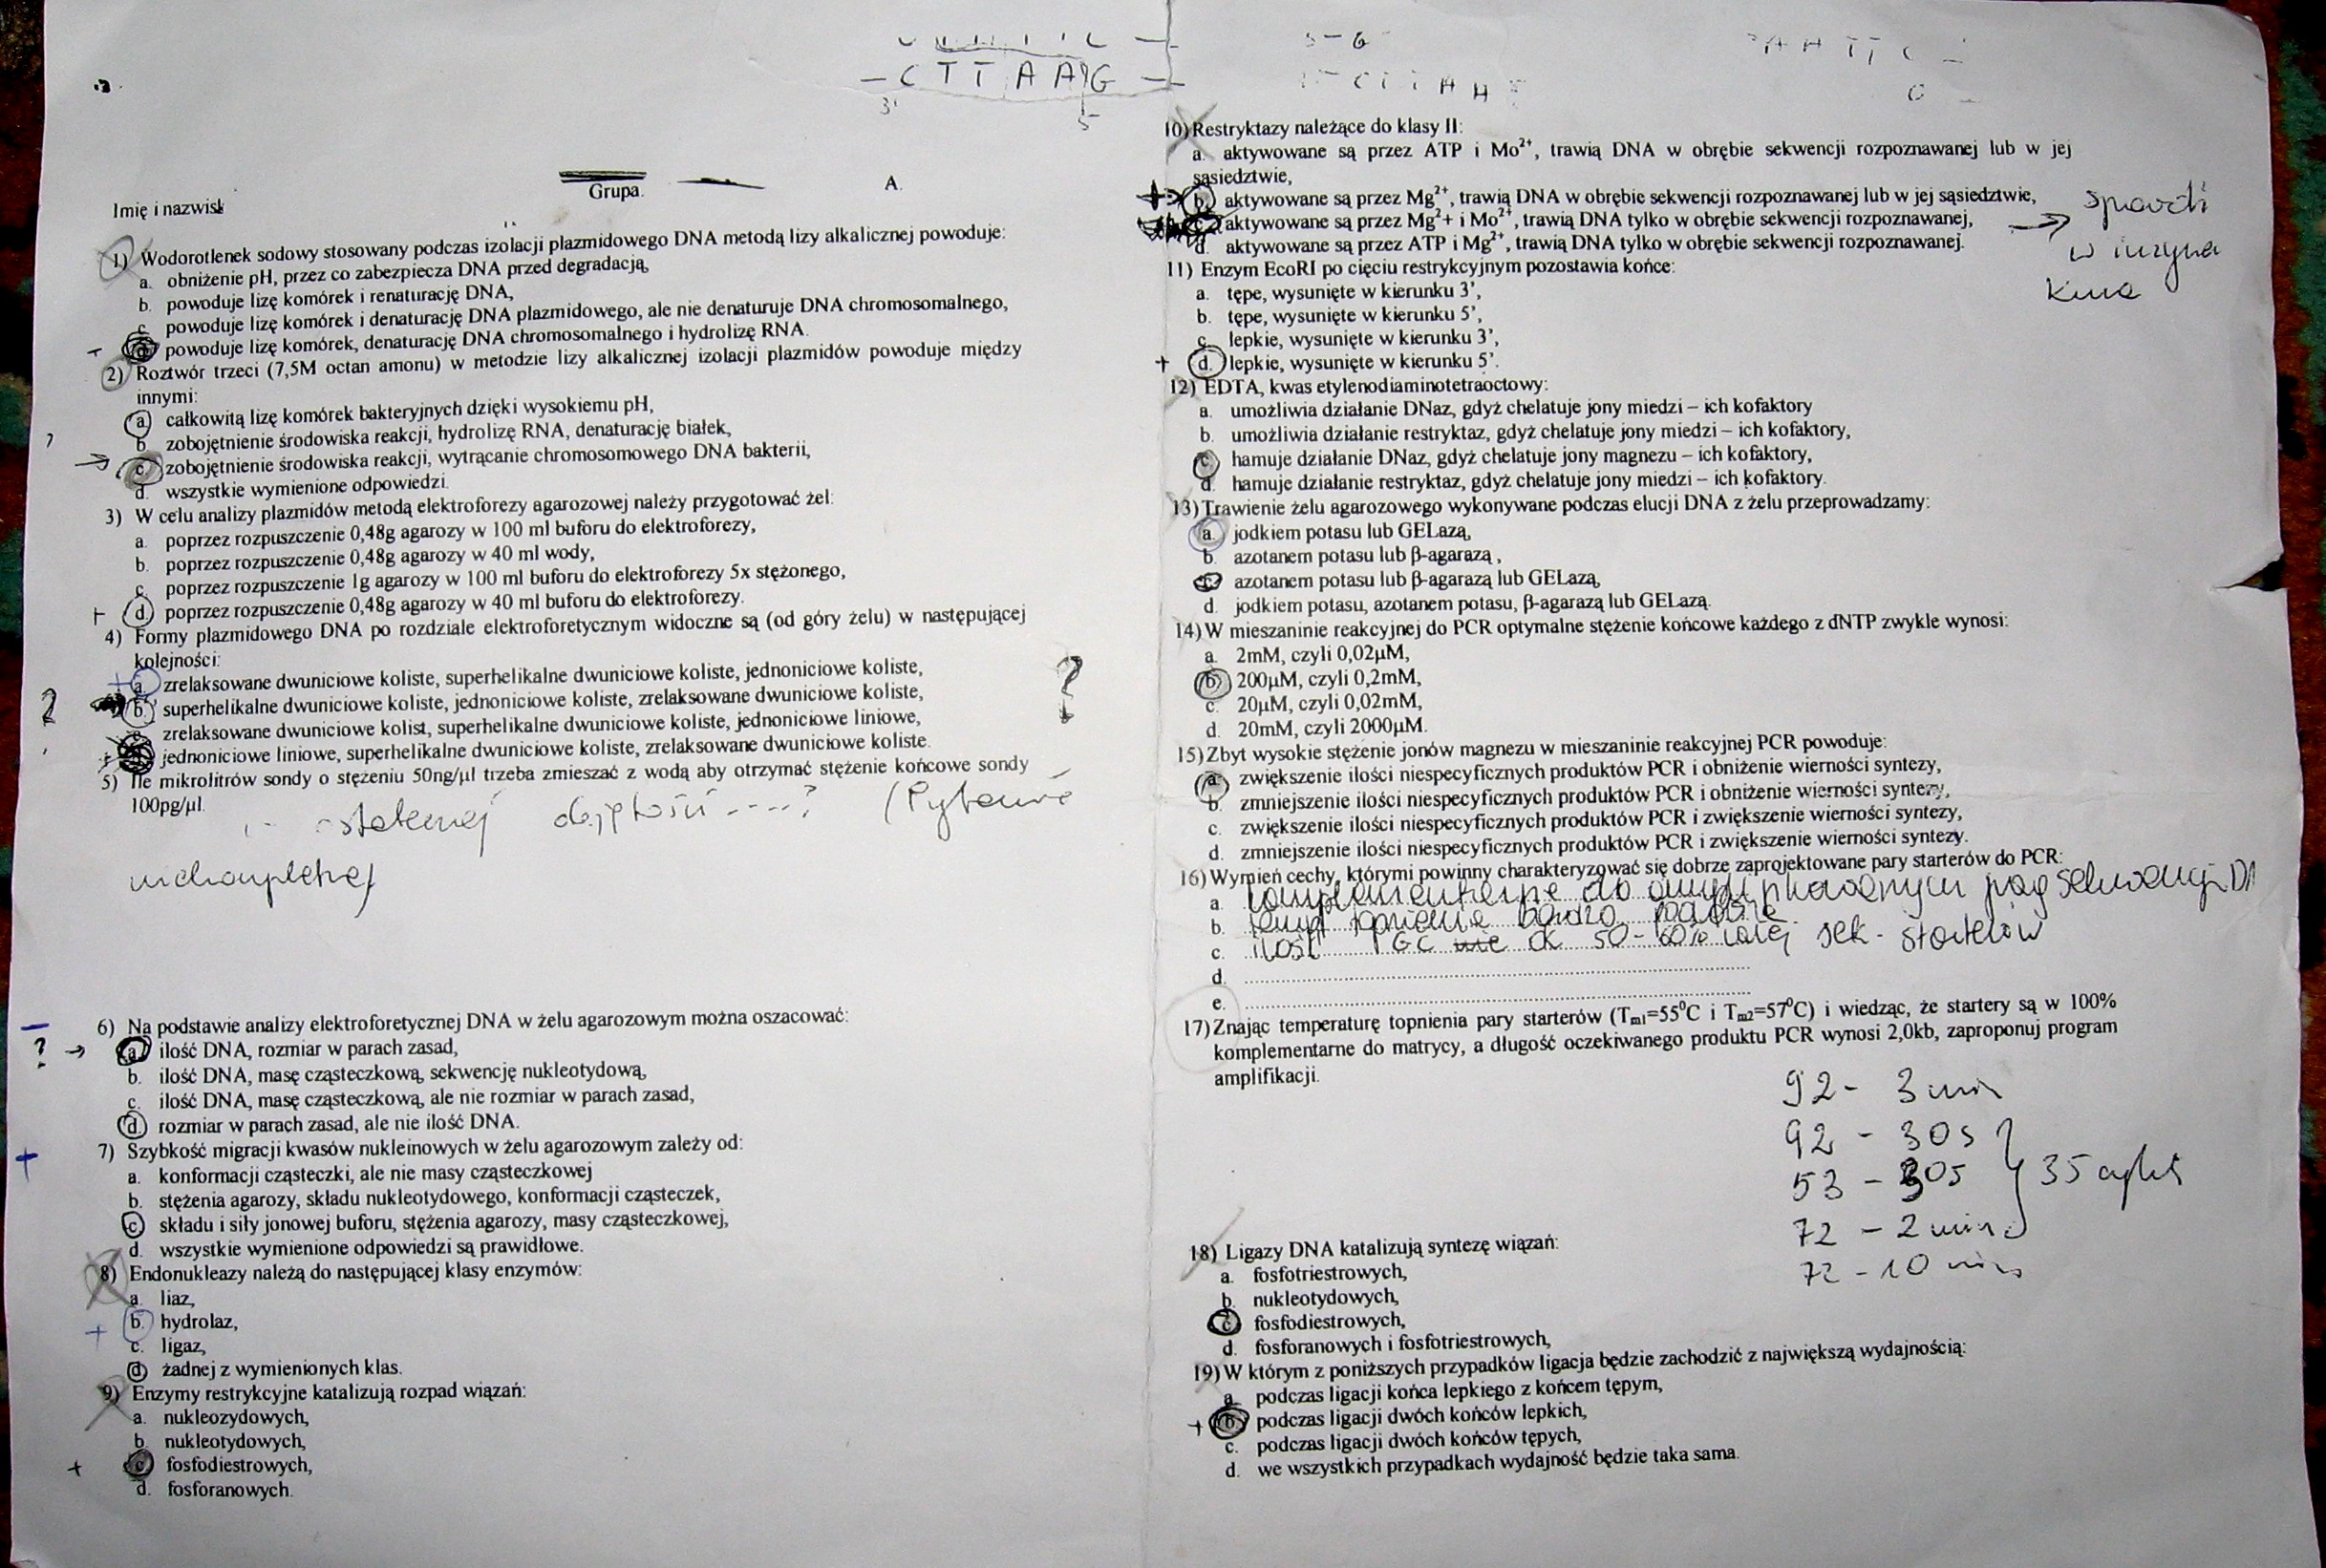 – C T T A A G –
3'
5'
Grupa. A.
Imię i nazwisk
1) Wodorotlenek sodowy stosowany podczas izolacji plazmidowego DNA metodą lizy alkalicznej powoduje:
a. obniżenie pH, przez co zabezpiecza DNA przed degradacją,
b. powoduje lizę komórek i renaturację DNA,
c. powoduje lizę komórek i denaturację DNA plazmidowego, ale nie denaturuje DNA chromosomalnego,
+ d. powoduje lizę komórek, denaturację DNA chromosomalnego i hydrolizę RNA.
2) Roztwór trzeci (7,5M octan amonu) w metodzie lizy alkalicznej izolacji plazmidów powoduje między
innymi:
a. całkowitą lizę komórek bakteryjnych dzięki wysokiemu pH,
? b. zobojętnienie środowiska reakcji, hydrolizę RNA, denaturację białek,
→ c. zobojętnienie środowiska reakcji, wytrącanie chromosomowego DNA bakterii,
d. wszystkie wymienione odpowiedzi.
3) W celu analizy plazmidów metodą elektroforezy agarozowej należy przygotować żel:
a. poprzez rozpuszczenie 0,48g agarozy w 100 ml buforu do elektroforezy,
b. poprzez rozpuszczenie 0,48g agarozy w 40 ml wody,
c. poprzez rozpuszczenie 1g agarozy w 100 ml buforu do elektroforezy 5x stężonego,
+ d. poprzez rozpuszczenie 0,48g agarozy w 40 ml buforu do elektroforezy.
4) Formy plazmidowego DNA po rozdziale elektroforetycznym widoczne są (od góry żelu) w następującej
kolejności:
+ a. zrelaksowane dwuniciowe koliste, superhelikalne dwuniciowe koliste, jednoniciowe koliste, ?
? b. superhelikalne dwuniciowe koliste, jednoniciowe koliste, zrelaksowane dwuniciowe koliste,
c. zrelaksowane dwuniciowe kolist, superhelikalne dwuniciowe koliste, jednoniciowe liniowe,
+ d. jednoniciowe liniowe, superhelikalne dwuniciowe koliste, zrelaksowane dwuniciowe koliste.
5) Ile mikrolitrów sondy o stężeniu 50ng/µl trzeba zmieszać z wodą aby otrzymać stężenie końcowe sondy
100pg/µl.
objętości ----? (Pytanie
niekompletne)
– 6) Na podstawie analizy elektroforetycznej DNA w żelu agarozowym można oszacować:
? → a. ilość DNA, rozmiar w parach zasad,
b. ilość DNA, masę cząsteczkową, sekwencję nukleotydową,
c. ilość DNA, masę cząsteczkową, ale nie rozmiar w parach zasad,
d. rozmiar w parach zasad, ale nie ilość DNA.
+ 7) Szybkość migracji kwasów nukleinowych w żelu agarozowym zależy od:
a. konformacji cząsteczki, ale nie masy cząsteczkowej
b. stężenia agarozy, składu nukleotydowego, konformacji cząsteczek,
c. składu i siły jonowej buforu, stężenia agarozy, masy cząsteczkowej,
d. wszystkie wymienione odpowiedzi są prawidłowe.
8) Endonukleazy należą do następującej klasy enzymów:
a. liaz,
+ b. hydrolaz,
c. ligaz,
d. żadnej z wymienionych klas.
9) Enzymy restrykcyjne katalizują rozpad wiązań:
a. nukleozydowych,
b. nukleotydowych,
+ c. fosfodiestrowych,
d. fosforanowych.
10) Restryktazy należące do klasy II:
a. aktywowane są przez ATP i Mo²⁺, trawią DNA w obrębie sekwencji rozpoznawanej lub w jej
sąsiedztwie,
+ b. aktywowane są przez Mg²⁺, trawią DNA w obrębie sekwencji rozpoznawanej lub w jej sąsiedztwie,
c. aktywowane są przez Mg²+ i Mo²⁺, trawią DNA tylko w obrębie sekwencji rozpoznawanej,
d. aktywowane są przez ATP i Mg²⁺, trawią DNA tylko w obrębie sekwencji rozpoznawanej.
→ w
11) Enzym EcoRI po cięciu restrykcyjnym pozostawia końce:
a. tępe, wysunięte w kierunku 3’,
b. tępe, wysunięte w kierunku 5’,
c. lepkie, wysunięte w kierunku 3’,
+ d. lepkie, wysunięte w kierunku 5’.
12) EDTA, kwas etylenodiaminotetraoctowy:
a. umożliwia działanie DNaz, gdyż chelatuje jony miedzi – ich kofaktory
b. umożliwia działanie restryktaz, gdyż chelatuje jony miedzi – ich kofaktory,
c. hamuje działanie DNaz, gdyż chelatuje jony magnezu – ich kofaktory,
d. hamuje działanie restryktaz, gdyż chelatuje jony miedzi – ich kofaktory.
13) Trawienie żelu agarozowego wykonywane podczas elucji DNA z żelu przeprowadzamy:
a. jodkiem potasu lub GELazą,
b. azotanem potasu lub β-agarazą ,
c. azotanem potasu lub β-agarazą lub GELazą,
d. jodkiem potasu, azotanem potasu, β-agarazą lub GELazą.
14) W mieszaninie reakcyjnej do PCR optymalne stężenie końcowe każdego z dNTP zwykle wynosi:
a. 2mM, czyli 0,02µM,
b. 200µM, czyli 0,2mM,
c. 20µM, czyli 0,02mM,
d. 20mM, czyli 2000µM.
15) Zbyt wysokie stężenie jonów magnezu w mieszaninie reakcyjnej PCR powoduje:
a. zwiększenie ilości niespecyficznych produktów PCR i obniżenie wierności syntezy,
b. zmniejszenie ilości niespecyficznych produktów PCR i obniżenie wierności syntezy,
c. zwiększenie ilości niespecyficznych produktów PCR i zwiększenie wierności syntezy,
d. zmniejszenie ilości niespecyficznych produktów PCR i zwiększenie wierności syntezy.
16) Wymień cechy, którymi powinny charakteryzować się dobrze zaprojektowane pary starterów do PCR:
a. komplementarne do sekwencji
b. temp topnienia bardzo podobne
c. ilość GC ok 50-60% całej sek. starterów
d.
e.
17) Znając temperaturę topnienia pary starterów (Tm1=55⁰C i Tm2=57⁰C) i wiedząc, że startery są w 100%
komplementarne do matrycy, a długość oczekiwanego produktu PCR wynosi 2,0kb, zaproponuj program
amplifikacji.
92 - 3 min
92 - 30s
53 - 30s 35 cykli
72 - 2 min
72 - 10 min
18) Ligazy DNA katalizują syntezę wiązań:
a. fosfotriestrowych,
b. nukleotydowych,
c. fosfodiestrowych,
d. fosforanowych i fosfotriestrowych,
19) W którym z poniższych przypadków ligacja będzie zachodzić z największą wydajnością:
a. podczas ligacji końca lepkiego z końcem tępym,
+ b. podczas ligacji dwóch końców lepkich,
c. podczas ligacji dwóch końców tępych,
d. we wszystkich przypadkach wydajność będzie taka sama.